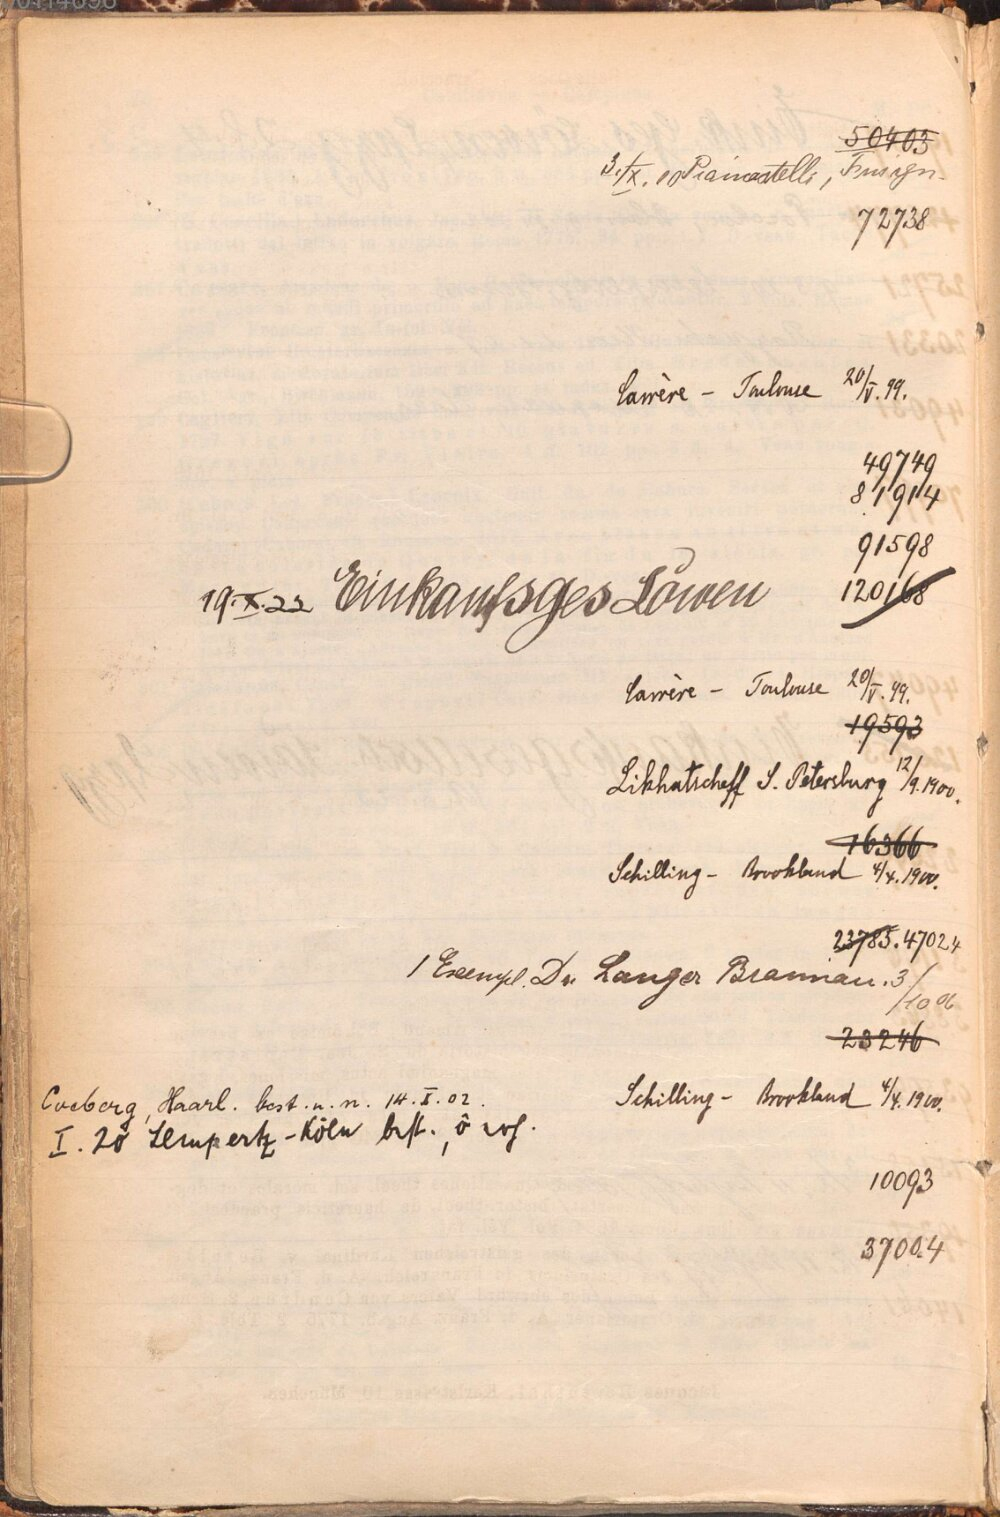 50403
3./IX. 10 Piancastelli, Fusign.
72738
Carrère – Toulouse 20/V. 99.
49749
81914
91598
19.X.22 Einkaufsges Löwen 120168
Carrère – Toulouse 20/V. 99.
19593
Likhatscheff S. Petersburg 12/9. 1900.
16366
Schilling – Brookland 4/4. 1900.
23785. 47024
1 Exempl. Dr. Langer Braunau. 3/10 06
23246
Schilling – Brookland 4/4. 1900.
Coeborg, Haarl. best. u. n. 14. I. 02.
I. 20 Lempertz – Köln best.,
10093
37004